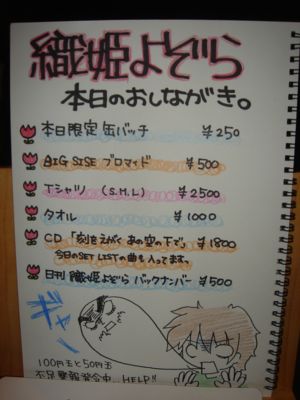 織姫よぞら
本日のおしながき。
本日限定 缶バッチ ¥250
BIG SISE ブロマイド ¥500
Tシャツ (S.M.L) ¥2500
タオル ¥1000
CD 「刻をえがく あの空の下で」 ¥1800
今日のSET LISTの曲も入ってます。
日刊 織姫よぞら バックナンバー ¥500
ギャー
100円玉と50円玉
不足警報発令中 HELP!!